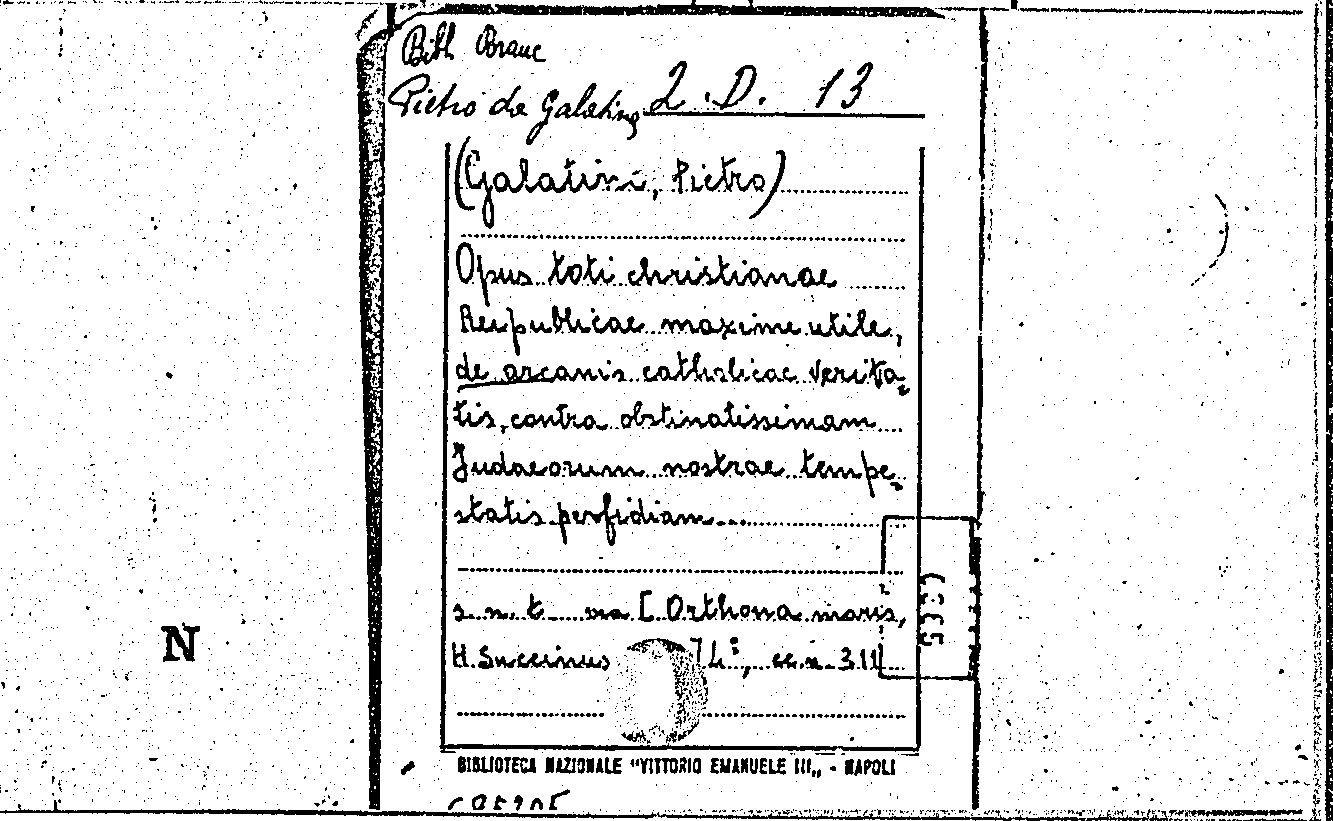 Bibl Branc
Pietro da Galatina 2. D. 13
(Galatini, Pietro)
Opus toti christianae
Reipublicae maxime utile,
de arcanis catholicae verita-
tis, contra obstinatissimam
Judaeorum nostrae tempe-
statis perfidiam...
s. n. t. ma [Orthona maris,
H. Suncinus ] 4°, cc. n. 311
N
BIBLIOTECA NAZIONALE "VITTORIO EMANUELE III„ - NAPOLI